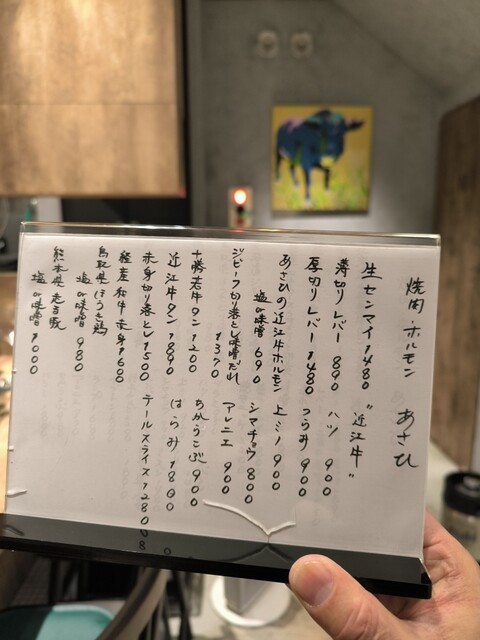 焼肉 ホルモン あさひ
"近江牛"
生センマイ 1480
薄切りレバー 890
ハツ 900
厚切りレバー 1480
つらみ 900
あさひの近江牛ホルモン
塩or味噌 690
上ミノ 900
ジビーフ切り落とし味噌だれ
1370
シマチョウ 800
アレニエ 900
十勝若牛タン 1200
ちからこぶ 900
近江牛タン 1890
はらみ 1800
赤身切り落とし 1500
テールスライス 1280
経産和牛赤身 1600
鳥取県ほうき鶏
塩or味噌 980
熊本県走る豚
塩or味噌 1000